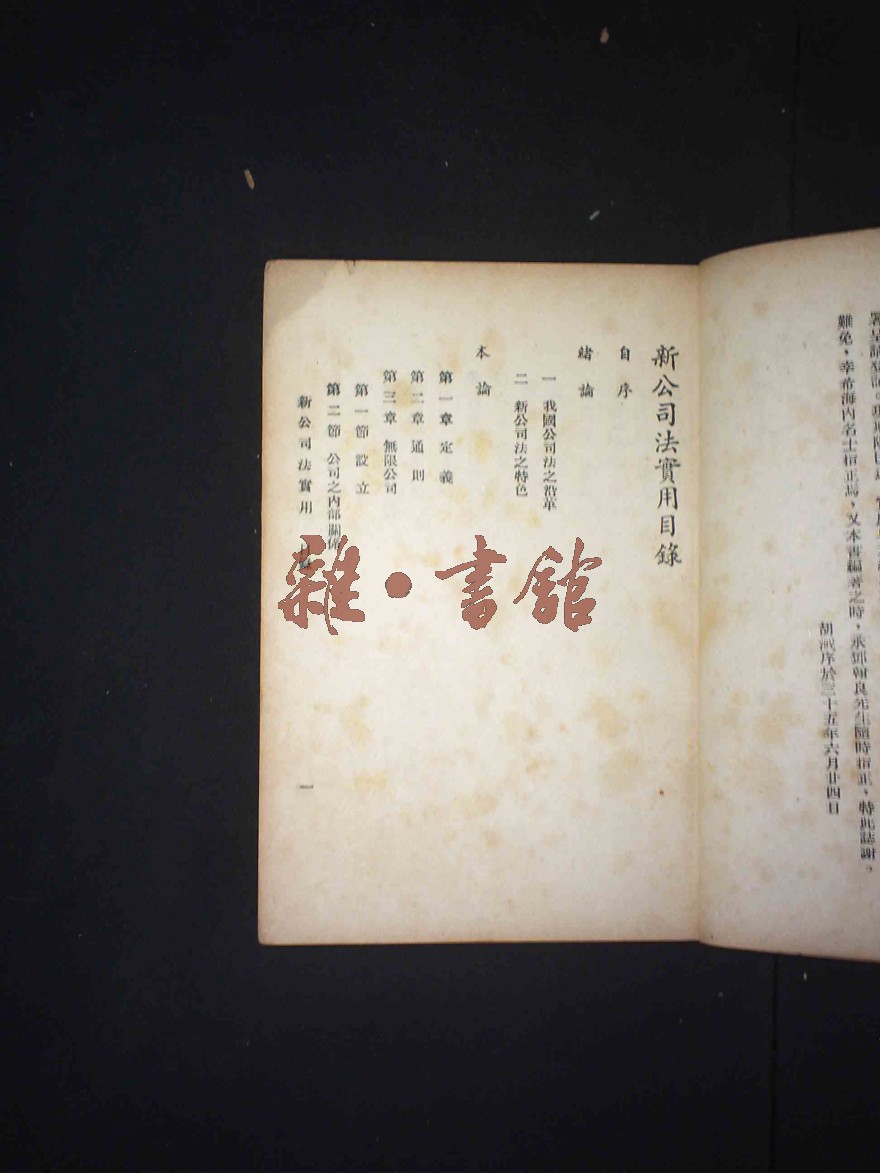 難免，幸希海內名士指正焉，又本書編著之時，承鄧翰良先生隨時指正，特此誌謝。
序於三十五年六月廿四日
新公司法實用目錄
自序
緒論
一 我國公司法之沿革
二 新公司法之特色
本論
第一章 定義
第二章 通則
第三章 無限公司
第一節 設立
第二節 公司之內部關係
新公司法實用 目錄
一
雜·書館